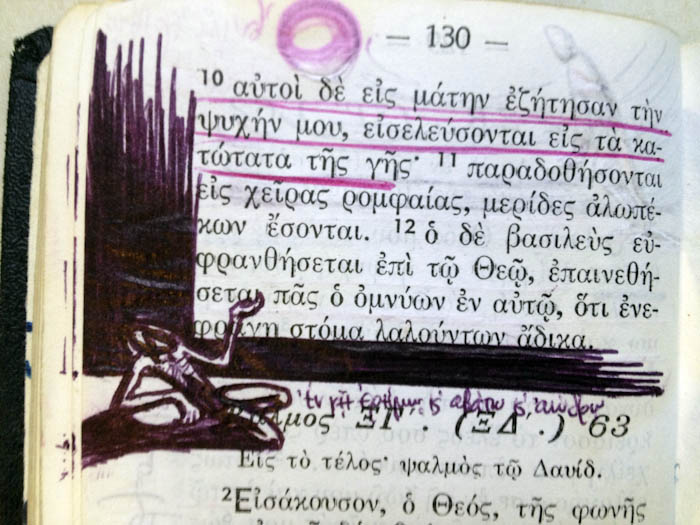 — 130 —
10 αὐτοὶ δὲ εἰς μάτην ἐζήτησαν τὴν
ψυχήν μου, εἰσελεύσονται εἰς τὰ κα-
τώτατα τῆς γῆς· 11 παραδοθήσονται
εἰς χεῖρας ρομφαίας, μερίδες ἀλωπέ-
κων ἔσονται. 12 ὁ δὲ βασιλεὺς εὐ-
φρανθήσεται ἐπὶ τῷ Θεῷ, ἐπαινεθή-
σεται πᾶς ὁ ὀμνύων ἐν αὐτῷ, ὅτι ἐνε-
φράγη στόμα λαλούντων ἄδικα.
ἐν γῇ ἐρήμῳ
Ψαλμὸς ΞΓ΄. (ΞΔ΄.) 63
Εἰς τὸ τέλος· ψαλμὸς τῷ Δαυίδ.
2 Εἰσάκουσον, ὁ Θεός, τῆς φωνῆς